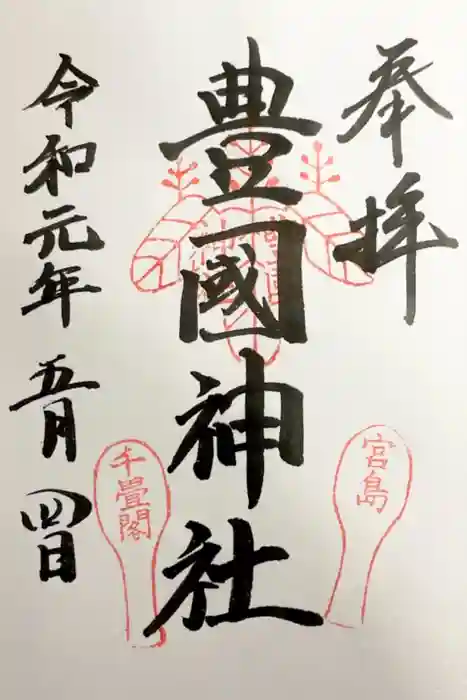 奉拝
豊國神社
宮島
千畳閣
令和元年 五月 四日